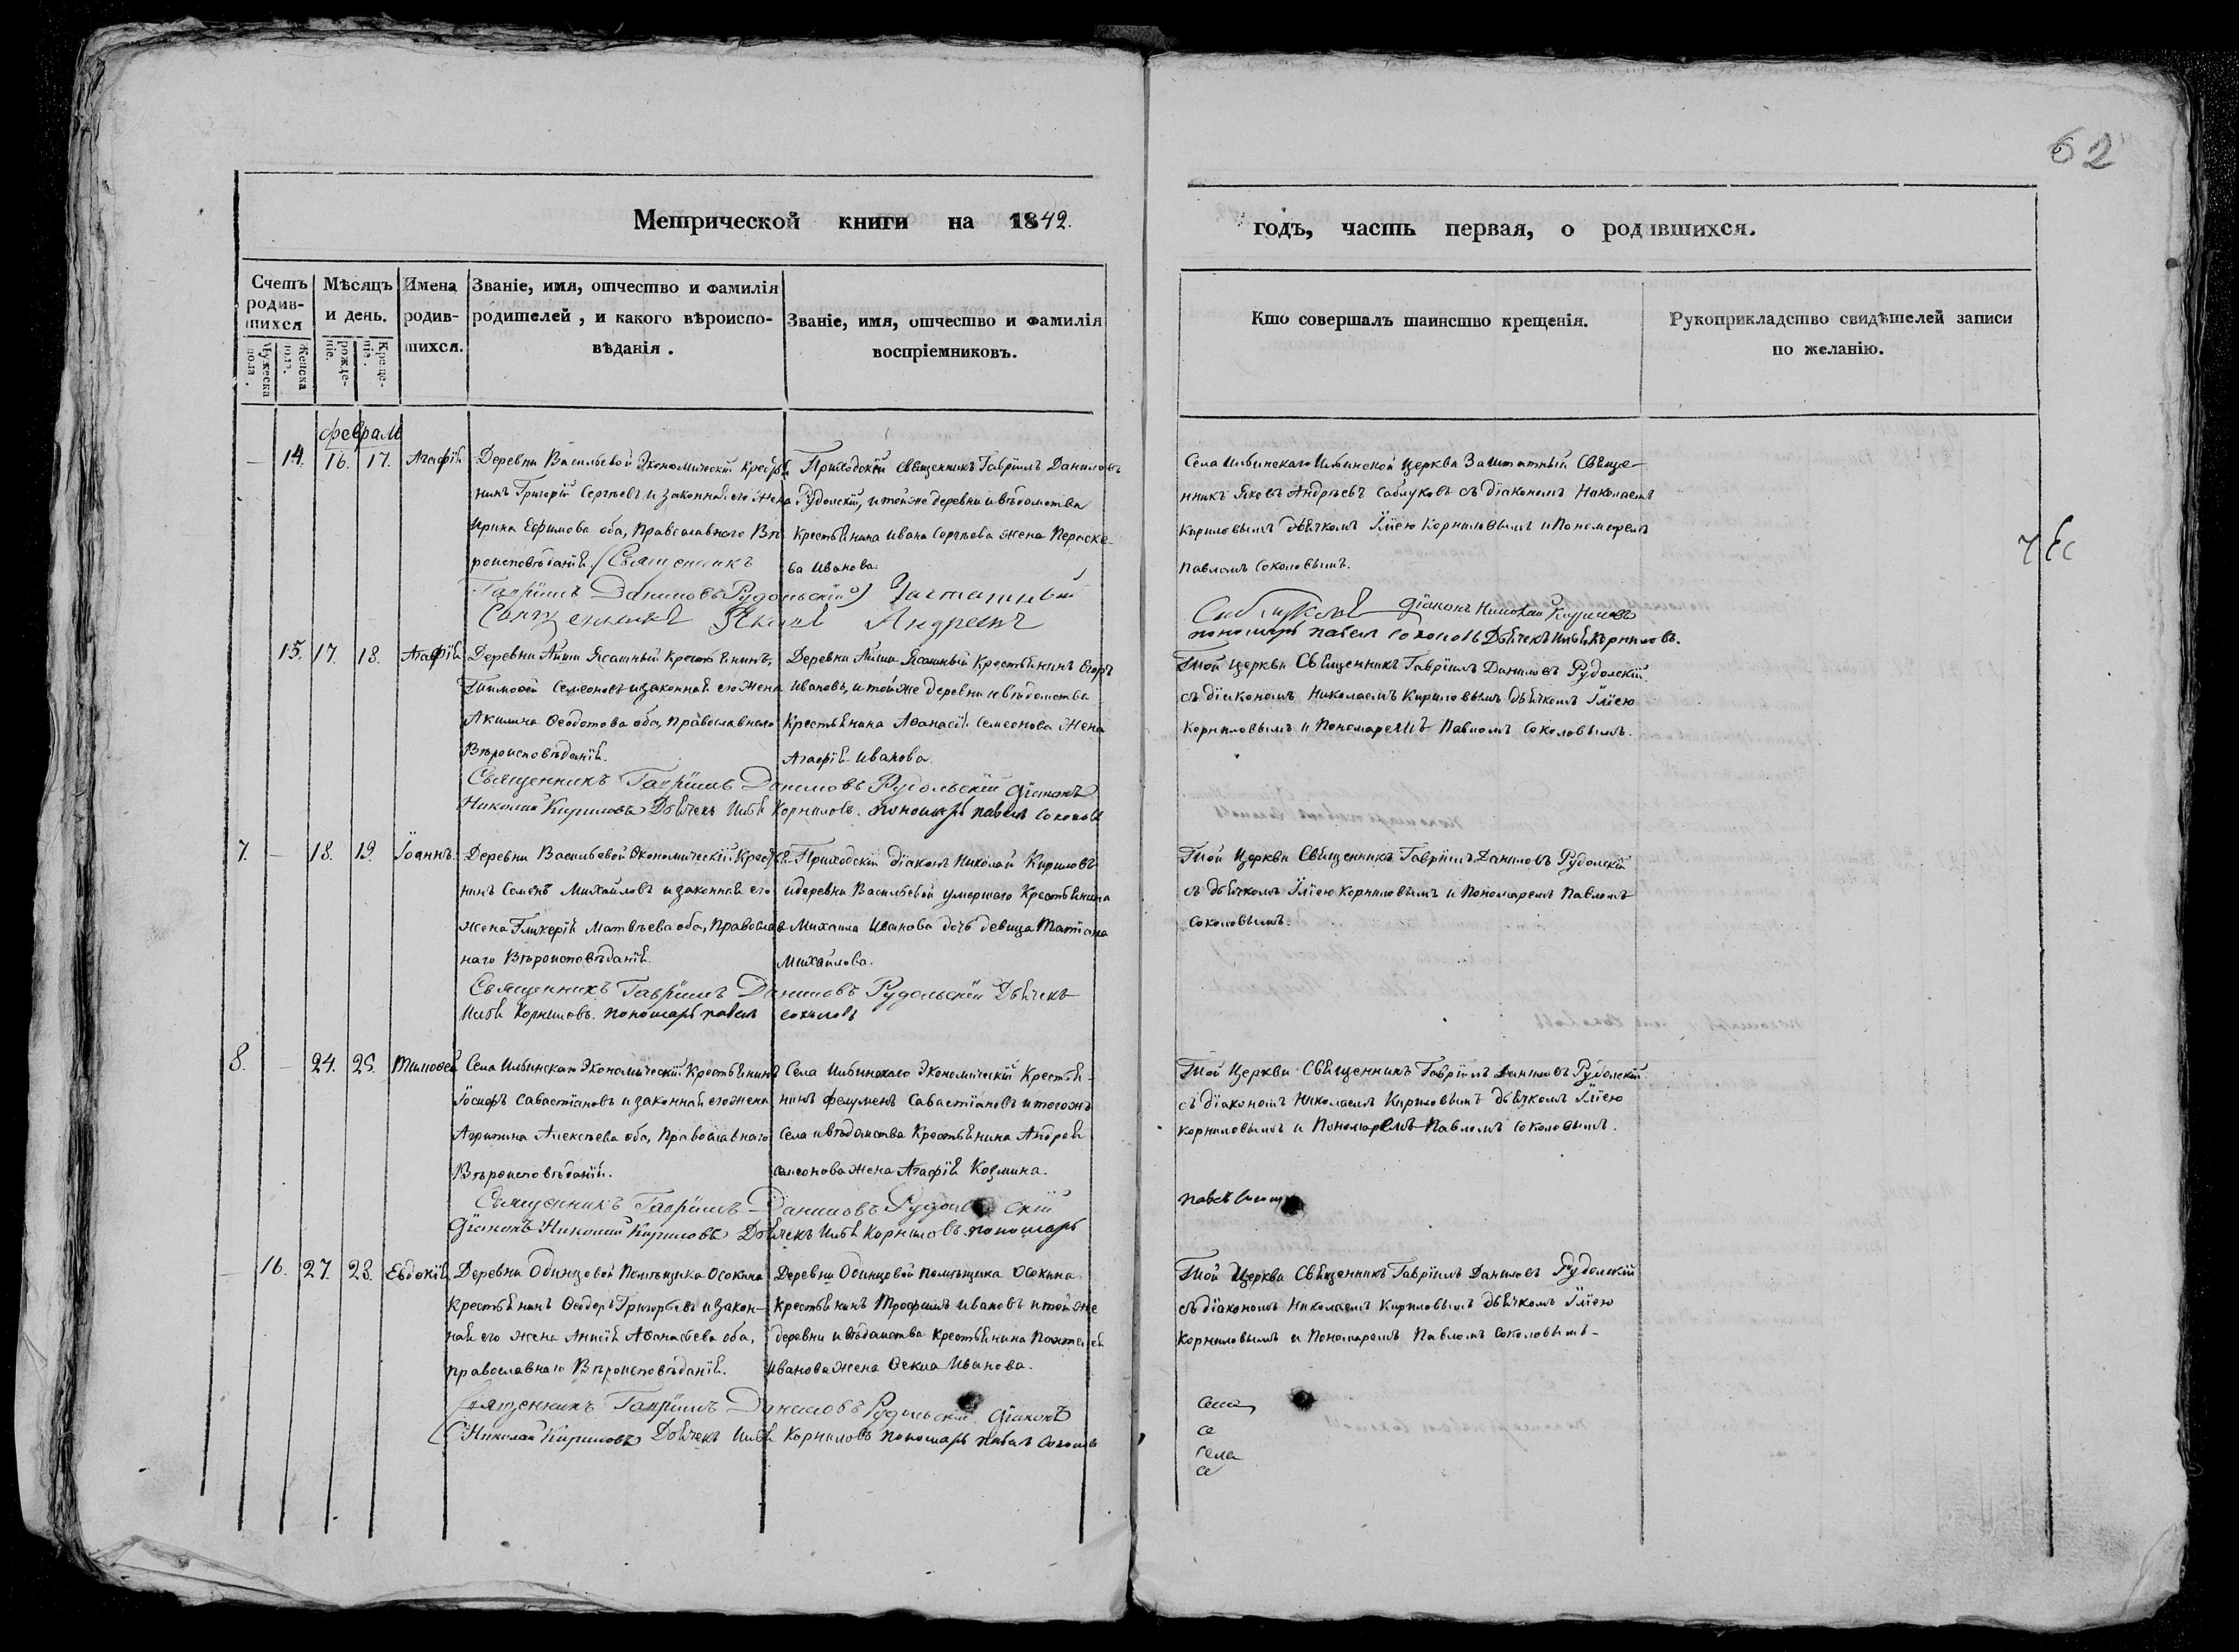 62
Метрической книги на 1842.
годъ, часть первая, о родившихся.
Счетъ родив-шихся
Мужеска пола.
Женска пола.
Мѣсяцъ и день.
рожде-ніе.
Креще-ніе.
Имена родив-шихся.
Званіе, имя, отчество и фамилія родителей, и какого вѣроиспо-вѣданія.
Званіе, имя, отчество и фамилія воспріемниковъ.
Кто совершалъ таинство крещенія.
Рукоприкладство свидѣтелей записи по желанію.
февраля
— 14. 16. 17. Агафія
Деревни Васильевой Экономическій кресть-
нинъ Григорій Сергѣевъ и законная его жена
Ирина Ефимова оба, Православнаго Вѣ-
роисповѣданія.
Приходскій священникъ Гавріилъ Даниловъ
Рудолскій, и тойже деревни и вѣдомства
Крестьянина Ивана Сергѣева жена Параске-
ва Иванова.
Села Ильинскаго Ильинской церкви Заштатный Свяще-
нникъ Яковъ Андреевъ Саблуковъ съ діакономъ Николаемъ
Кириловымъ дьячкомъ Иліею Корниловымъ и Пономаремъ
Павломъ Соколовымъ.
Священникъ
Гавріилъ Даниловъ Рудольскій Заштатный
Священникъ Яковъ Андреевъ
Саблуковъ Діаконъ Николай Кириловъ
пономарь павелъ соколовъ Дьячекъ Илья Корниловъ.
15. 17. 18. Агафія
Деревни Айши Ясашный Крестьянинъ,
Тимофей Семеоновъ и законная его жена
Акилина Феодотова оба, Православнаго
Вѣроисповѣданія.
Деревни Айши Ясашный Крестьянинъ Егоръ
Ивановъ, и тойже деревни и вѣдомства
Крестьянина Афанасія Семеонова жена
Агафія Иванова.
Той церкви Священникъ Гавріилъ Даниловъ Рудолскій
съ діакономъ Николаемъ Кириловымъ дьячкомъ Иліею
Корниловымъ и Пономаремъ Павломъ Соколовымъ.
Священникъ Гавріилъ Даниловъ Рудольскій Діаконъ
Николай Кириловъ Дьячекъ Илья Корниловъ. пономарь павелъ соколовъ
7. — 18. 19. Іоаннъ.
Деревни Васильевой Экономическій Крестья-
нинъ Семенъ Михайловъ и законная его
жена Гликерія Матвѣева оба, Православ-
наго Вѣроисповѣданія.
Приходскій діаконъ Николай Кириловъ
и деревни Васильевой умершаго Крестьянина
Михаила Иванова дочь девица Татіана
Михайлова.
Той Церкви Священникъ Гавріилъ Даниловъ Рудолскій
съ дьячкомъ Иліею Корниловымъ и Пономаремъ Павломъ
Соколовымъ.
Священникъ Гавріилъ Даниловъ Рудольскій Дьячекъ
Илья Корниловъ. пономарь павелъ соколовъ
8. — 24. 25. Тимофей
Села Ильинскаго Экономическій Крестьянинъ
Іосифъ Савастіановъ и законная его жена
Агрипина Алексѣева оба, Православнаго
Вѣроисповѣданія.
Села Ильинскаго Экономическій Крестья-
нинъ Савастіановъ и тогожъ
Села и вѣдомства Крестьянина Андрея
Семеонова жена Агафія Козмина.
Той Церкви Священникъ Гавріилъ Даниловъ Рудолскій
съ діакономъ Николаемъ Кириловымъ дьячкомъ Иліею
Корниловымъ и Пономаремъ Павломъ Соколовымъ.
Священникъ Гавріилъ Даниловъ Рудольскій
Діаконъ Николай Кириловъ Дьячекъ Илья Корниловъ. пономарь
павелъ
— 16. 27. 28. Евдокія
Деревни Одинцовой Помѣщика Осокина
крестьянинъ Феодоръ Григорьевъ и закон-
ная его жена Анисія Афанасьева оба,
православнаго Вѣроисповѣданія.
Деревни Одинцовой Помѣщика Осокина
Крестьянинъ Трофимъ Ивановъ и тойже
деревни и вѣдомства крестьянина
Иванова жена Фекла Иванова.
Той Церкви Священникъ Гавріилъ Даниловъ Рудолскій
съ діакономъ Николаемъ Кириловымъ дьячкомъ Иліею
Корниловымъ и Пономаремъ Павломъ Соколовымъ.
Священникъ Гавріилъ Даниловъ Рудольскій. Діаконъ
Николай Кириловъ Дьячекъ Илья Корниловъ пономарь павелъ соколовъ
се
села
се